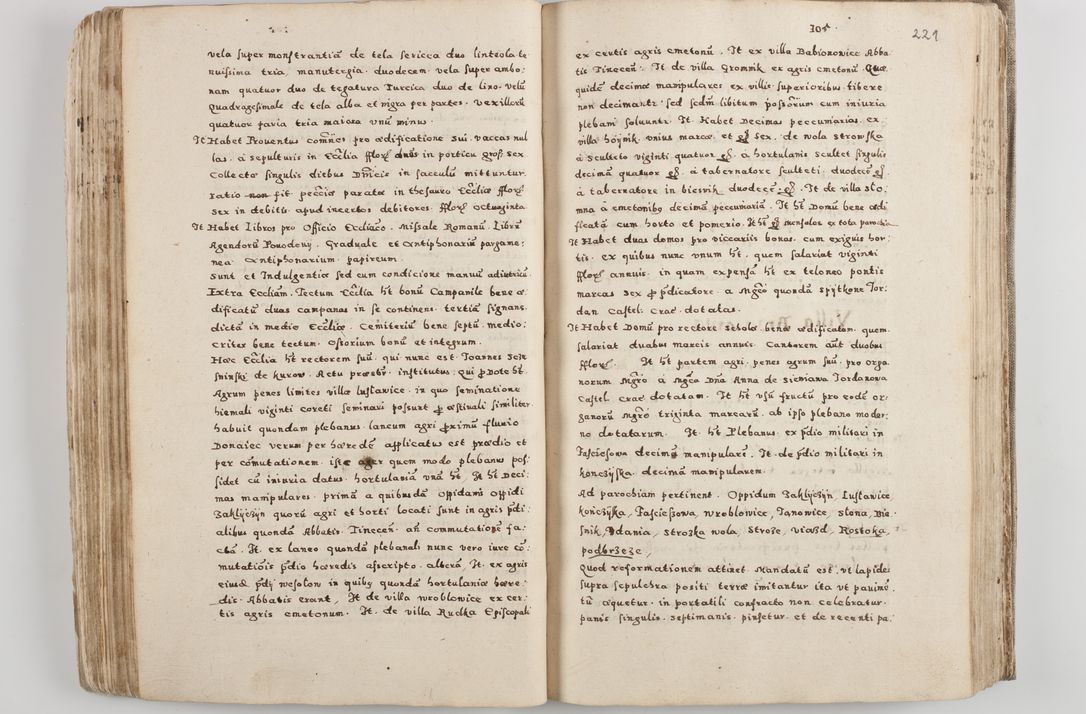 vela super monstrantiā de tela sericea duo linteola te
nuissima tria, manutergia duodecem vela super ambo
nam quatuor duo de tegatura Turcica duo de lino velū
Quadragesimale de tela alba et nigra per partes. vexillorū
quatuor paria tria maiora unū minus.
It Habet Prouentus com̄es pro ædificatione sui. vaccas nul
las. a sepulturis in Ecclīa in porticu groš. sex
Collecta singulis diebus Dn̄icis in sacculū mittuntur
ratio non fit pecc̄ia parata in thesauro Ecclīæ fflor̄
sex in debitis apud incertos debitores fflor̄ octuaginta
It Habet Libros pro Officio Ecclīaco. Missale Romanū. Librū
Agendorū Powodeny. Graduale et Antiphonariū pargame
nea Antiphonarium papireum.
Sunt et Indulgentiæ sed cum condicione manuū adiutriciū
Extra Eccliam. Tectum Ecclīa h̄t bonū Campanile bene æ
dificatū duas campanas in se continens. tertiā signans
dictā in medio Ecclīæ. Cemiteriū bene septū medio
criter bene tectum. Ostorium bonū et integrum.
Hæc Ecclīa h̄t rectorem suū qui nunc est Joannes
de kurow. Actu præsb̄r institutus. qui p̱ Dote h̄t
Agrum penes limites villæ lustawice in quo seminatione
hiemali viginti coreti seminari possunt p̱ æstiuali similiter
habuit quondam plebanus laneum agri p̱rimū fluuio
Donaiec verum per hæredē applicatus est prædio et
per cōmutationem iste ager quem modo plebanus pos
sidet cū iniuria datus hortulaniā unā h̄t, It h̄t Deci
mas manipulares primā a quibusdā oppidanis oppidi
Zakliyczyn quorū agri et horti locati sunt in agris p̄di
alibus quondā Abbatis Tinecen̄ añ commutatione fa
ctā. It. ex laneo quondā plebanali nunc vero iure cō
mutatiōis p̄dio hæredis ascripto alterā, It. ex agris
eiusd̄ p̄dij wesolow in quibȳ quondā hortulaniæ hære
dis. Abbatis erant, It de villa wroblowice ex cer
tis agris cmetonum. It. de villa Rudka Episcopali
221
ex certis agris cmetonū. It ex villa Babionowice Abba
tis Tinecen̄. It de villa Gromnik ex agris cmetonū Quæ
quidē decimæ manipulares ex villis superioribus libere
non decimant̄r sed secd̄m libitum poss̄orum cum iniuria
plebani soluunt̄r It Habet Decimas peccuniarias ex
villa hoynik unius marcæ et sex de wola strowska
a scultecto viginti quatuor a hortulanis scultet singulis
decimā quatuor a tabernatore sculteti duodecē
a tabernatore in biesnik duodecē It de villa slo
mna a cmetonibȳ decimā peccuniariā. It h̄t Domū bene ædi
ficatā cum horto et pomerio. It h̄t ex tota parochia
It Habet duas domos pro viccariis bonas cum exiguis hor
tis ex quibus nunc unum h̄t quem salariat viginti
fflor̄ annuis in quam expensā h̄t ex teloneo pontis
marcas sex p̱ p̄dicatore a Mgc̄o quondā Spytkone Jor
dan Castel. Crac dotatas.
It Habet Domū pro rectore scholæ bene ædificatam quem
salariat duabus marcis annuis. Cantorem aūt duobus
fflor̄ It h̄t partem agri penes agrum suū pro orga
norum Mgrō a Mgc̄a Dn̄a Anna de Sieniawa Jordanowa
Castel. Crac dotatam. It h̄t usū fructū pro eodē or
ganorū Mgrō triginta marcarū ab ipso plebano moder
no dotatarum. It h̄t Plebanus ex p̄dio militari in
Fasciesowa decimā manipularē. It de p̄dio militari in
konczyska decimā manipularem.
Ad parochiam pertinent. Oppidum Zakliyczyn, Lustawice,
konczyska, Fasciessowa, wroblowice, Janowice, Slona, Bie
snik, Zdania, Strozka wola, Stroze, viazd, Rostoka,
podbrzeze,
Quod reformationem attinet Mandatū est, vt lapides
supra sepulchra positi terræ imitantur ita vt pauimē
tū æquetur in portatili confracto non celebratur.
panis singulis septimanis pinsetur et de recenti pa